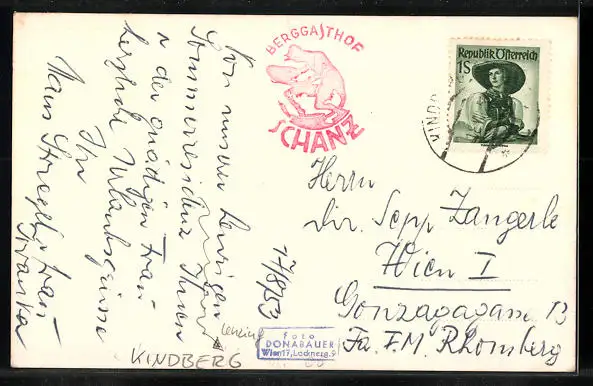 BERGGASTHOF
SCHANZ
Republik Österreich
1S
KINDB
Von unserer heurigen
Sommerresidenz Ihnen
u der gnädigen Frau
herzliche Urlaubsgrüsse
Ihr
Hans
17/8/53
Herrn
Dir. Sepp Zangerle
Wien I
Gonzagagasse 13
Fa. F. M. Rhomberg
foto
DONABAUER
Wien17, Lacknerg. 9
KINDBERG